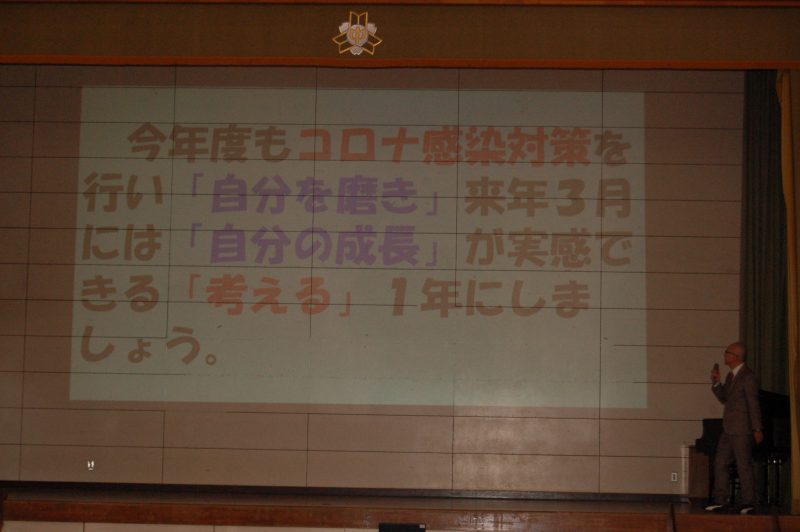 今年度もコロナ感染対策を
行い「自分を磨き」来年３月
には「自分の成長」が実感で
きる「考える」１年にしま
しょう。